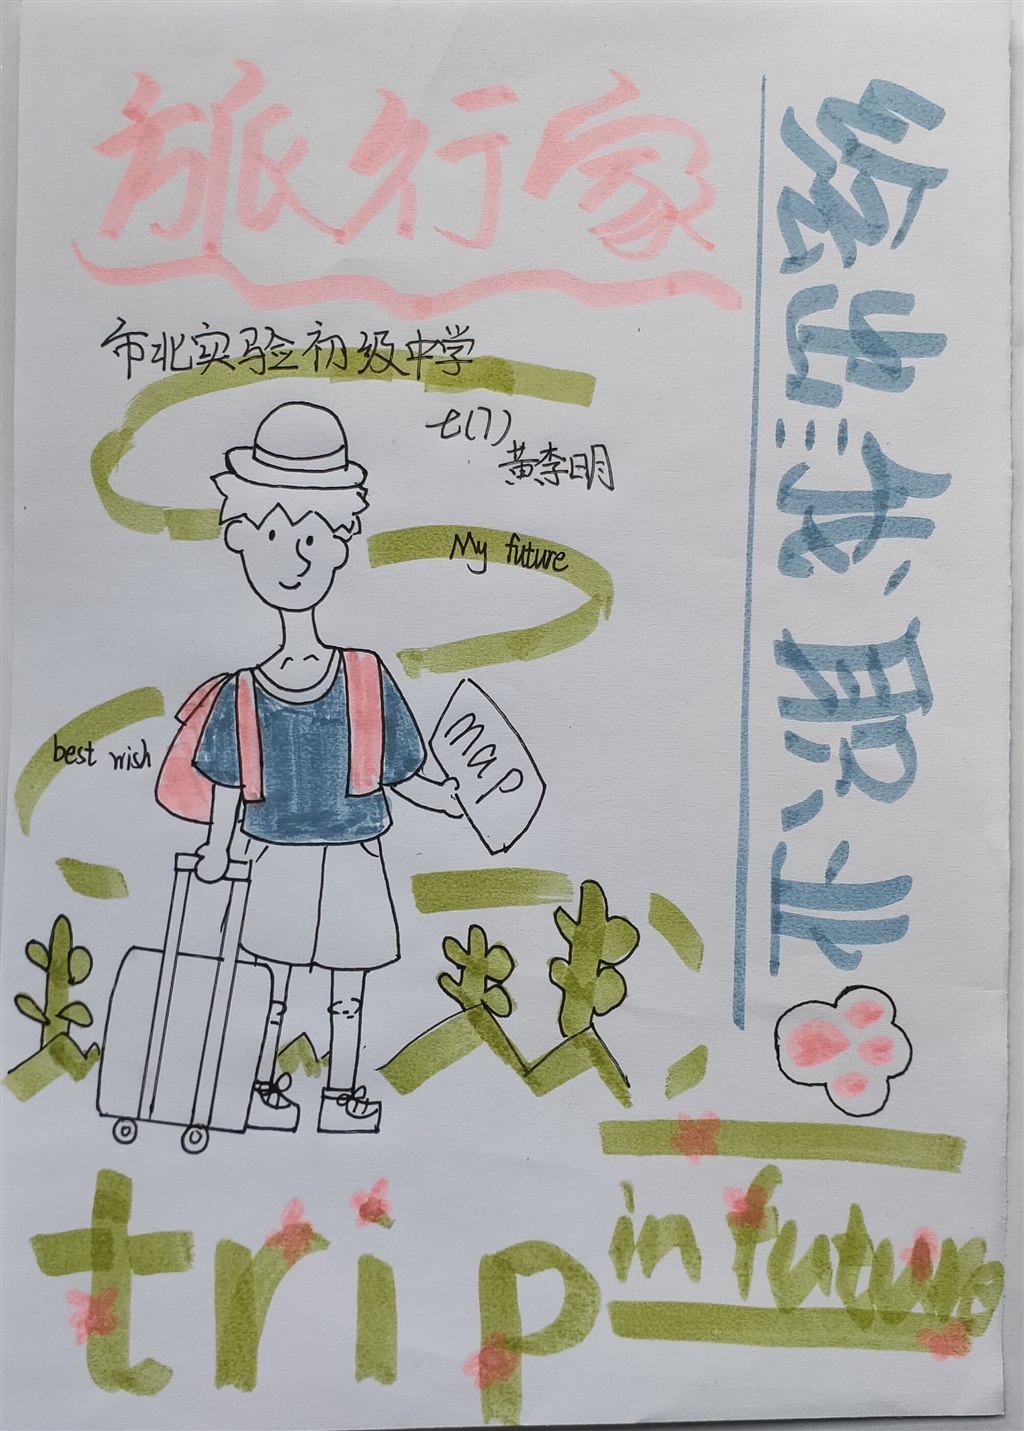 旅行家
市北实验初级中学
七(7)
黄李明
My future
best wish
map
绘出我职业
trip
in future